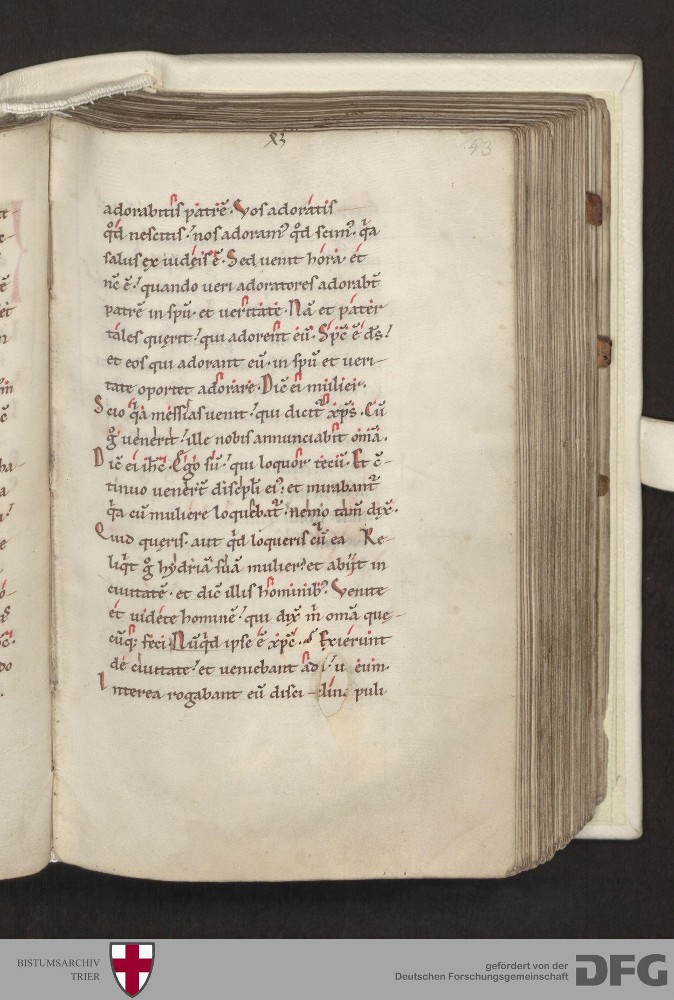 93
43
adorabitis patrē. Vos adoratis
qđ nescitis. nos adoram᷒ qđ scim᷒. q̄a
salus ex iudeis ē. Sed uenit hora et
nc̄ ē. quando ueri adoratores adorabt̄
patrē in spū. et ueritate. Nā et pater
tales querit. qui adorent eū. Sp̄c ē ds̄.
et eos qui adorant eū. in spū et ueri-
tate oportet adorare. Dic̄ ei mulier.
Scio q̄a messias uenit. qui dicit᷑ xp̄s. Cū
g̊ uenerit. ille nobis annunciabit om̄a.
Dic̄ ei ihc̄. Ego sū. qui loquor tecū. Et c̄-
tinuo uener̄t discpl̄i ei᷒. et mirabant᷑
q̄a cū muliere loquebat᷑. nemo tam̄ dix̄.
Quid queris. aut qđ loqueris cū ea Re-
liq̄t g̊ hydriā suā mulier. et abijt in
ciuitatē. et dic̄ illis hominib᷒. Venite
et uidete hominē. qui dix̄ m̄ om̄a quę-
cūq; feci. Nūq̄d ipse ē xp̄c. Exierunt
de ciuitate. et ueniebant ad eum.
Interea rogabant eū disci puli
BISTUMSARCHIV
TRIER
gefördert von der
Deutschen Forschungsgemeinschaft
DFG